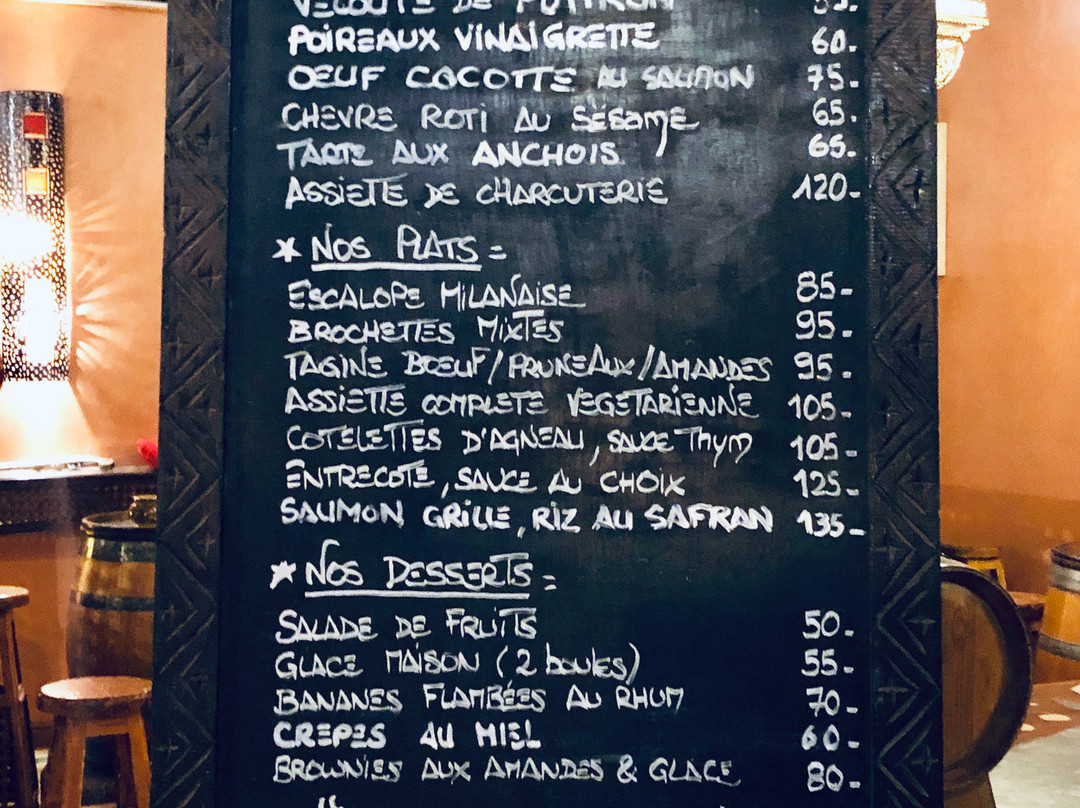 VELOUTE DE POTIRON
POIREAUX VINAIGRETTE 60.-
OEUF COCOTTE AU SAUMON 75.-
CHEVRE ROTI AU SESAME 65.
TARTE AUX ANCHOIS 65.-
ASSIETE DE CHARCUTERIE 120.-
* NOS PLATS =
ESCALOPE MILANAISE 85.-
BROCHETTES MIXTES 95.-
TAGINE BŒUF / PRUNEAUX / AMANDES 95.-
ASSIETTE COMPLETE VEGETARIENNE 105.-
COTELETTES D'AGNEAU, SAUCE Thym 105.-
ENTRECOTE, SAUCE AU CHOIX 125.-
SAUMON GRILLE, RIZ AU SAFRAN 135.-
* NOS DESSERTS =
SALADE DE FRUITS 50.-
GLACE MAISON (2 boules) 55.-
BANANES FLAMBÉES AU RHUM 70.-
CREPES AU MIEL 60.-
BROWNIES AUX AMANDES & GLACE 80.-